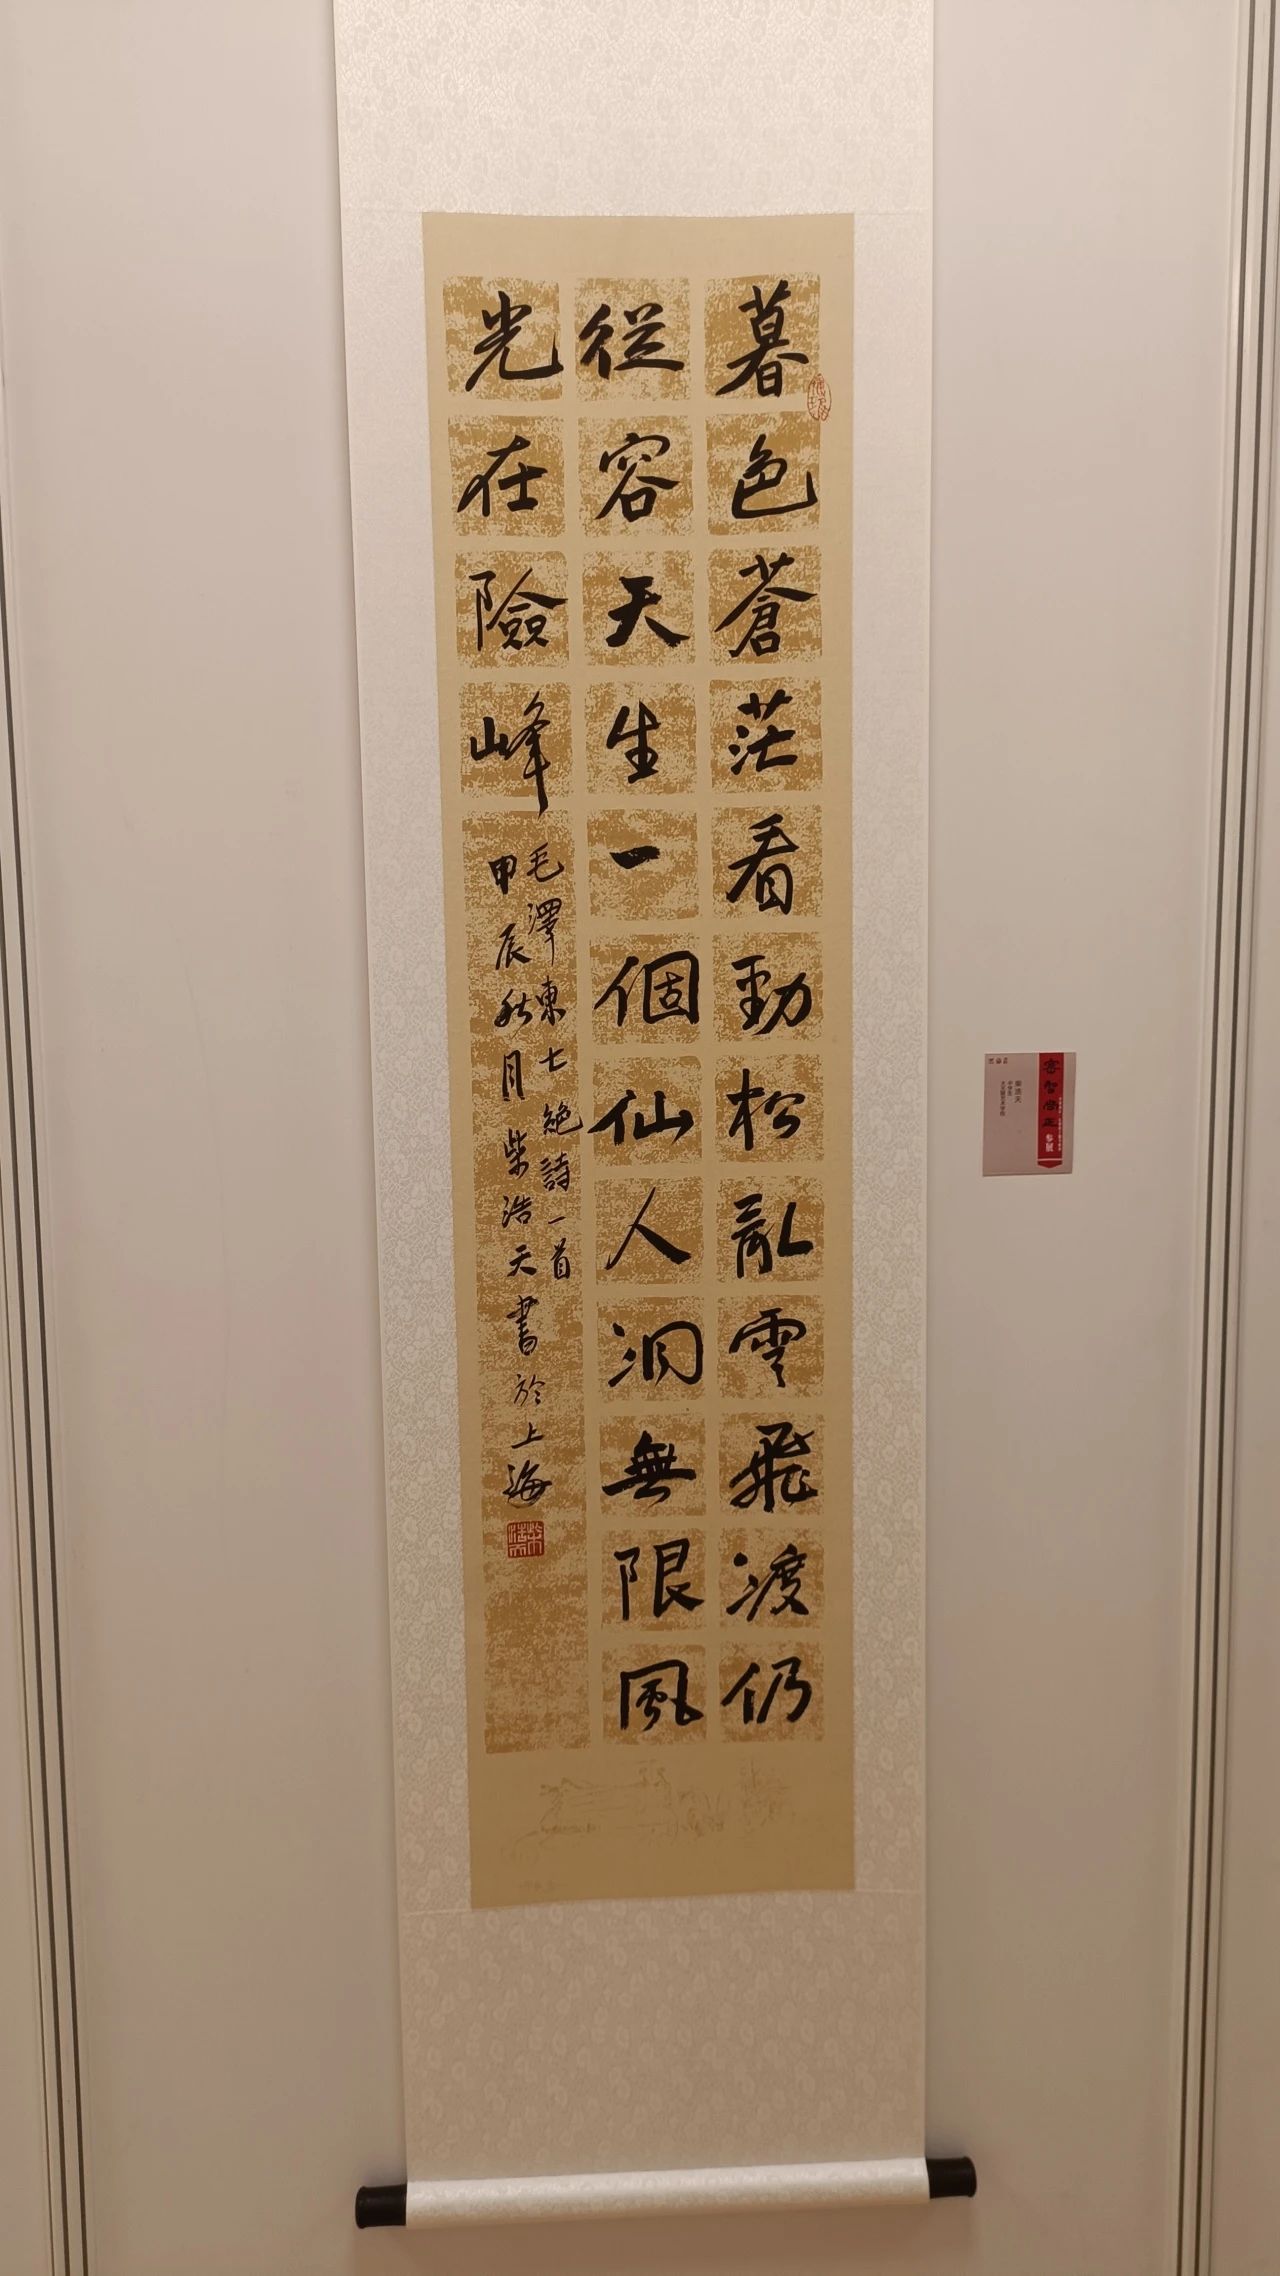 暮色蒼茫看勁松亂雲飛渡仍
從容天生一個仙人洞無限風
光在險峰
毛澤東七絕詩一首
甲辰秋月柴浩天書於上海
柴浩天